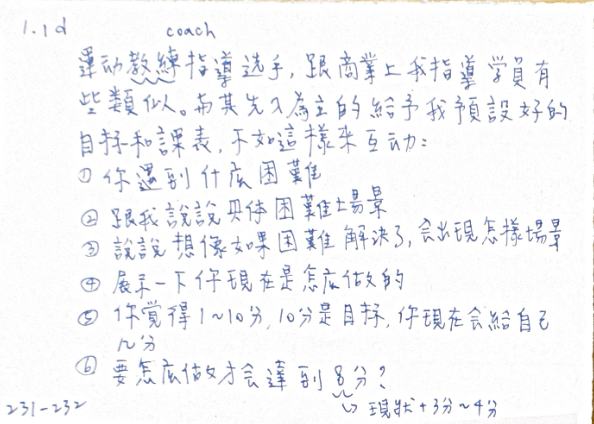 1.1d
coach
運动教練指導選手,跟商業上我指導學員有
些類似。与其先入為主的給予我預設好的
目标和課表,不如這樣來互动:
① 你遇到什麽困難
② 跟我說說具体困難場景
③ 說說想像如果困難解決了,会出現怎樣場景
④ 展示一下你現在是怎麽做的
⑤ 你覺得1~10分,10分是目标,你現在会給自己
几分
⑥ 要怎麽做才会達到8分?
↳ 現狀+3分~4分
231-232